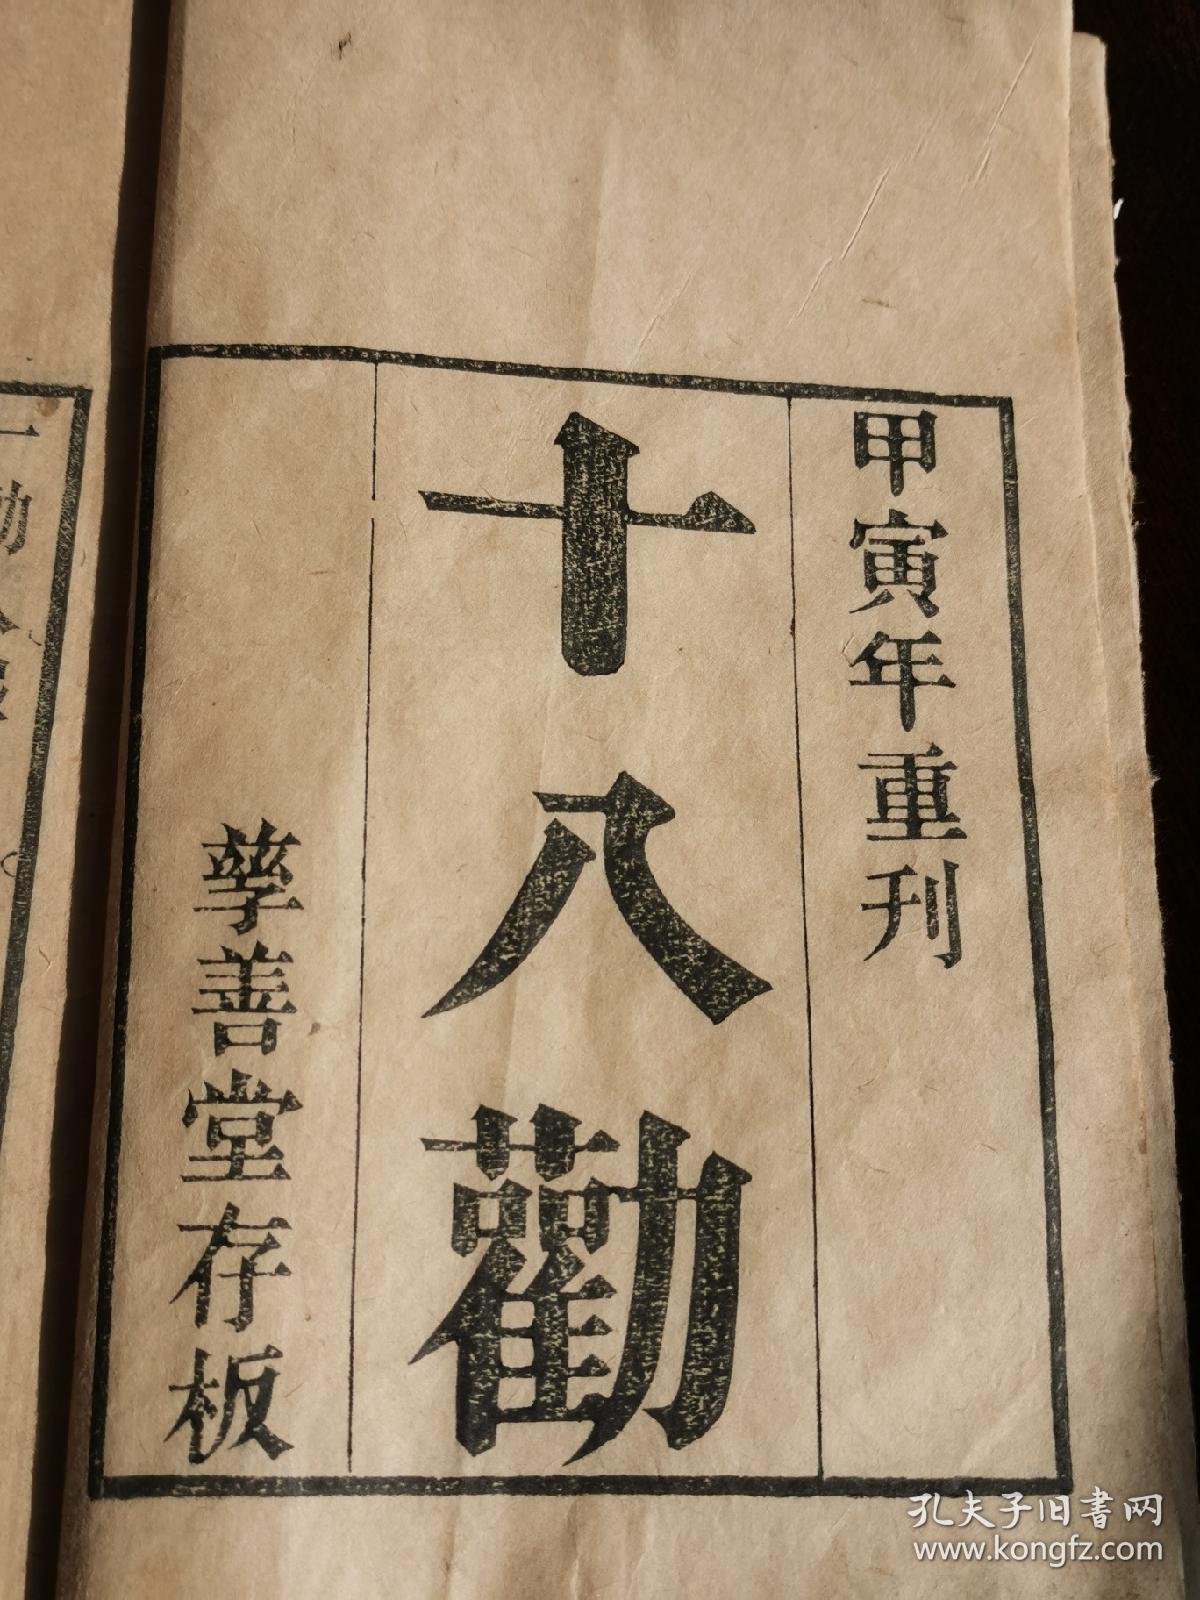 甲寅年重刊
十八勸
孳善堂存板
孔夫子旧書网
www.kongfz.com